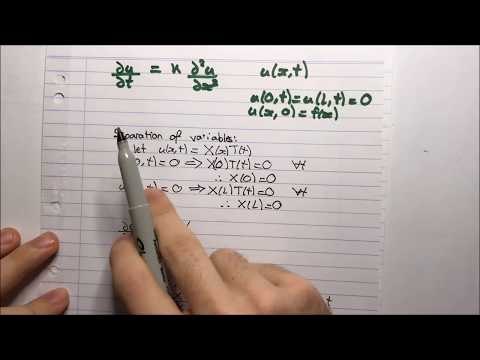 ∂u/∂t = κ ∂²u/∂x² u(x,t)
u(0,t)=u(L,t)=0
u(x,0)=f(x)
Separation of variables:
let u(x,t) = X(x)T(t)
(0,t)=0 ⟹ X(0)T(t)=0 ∀t
∴ X(0)=0
t)=0 ⟹ X(L)T(t)=0 ∀t
∴ X(L)=0